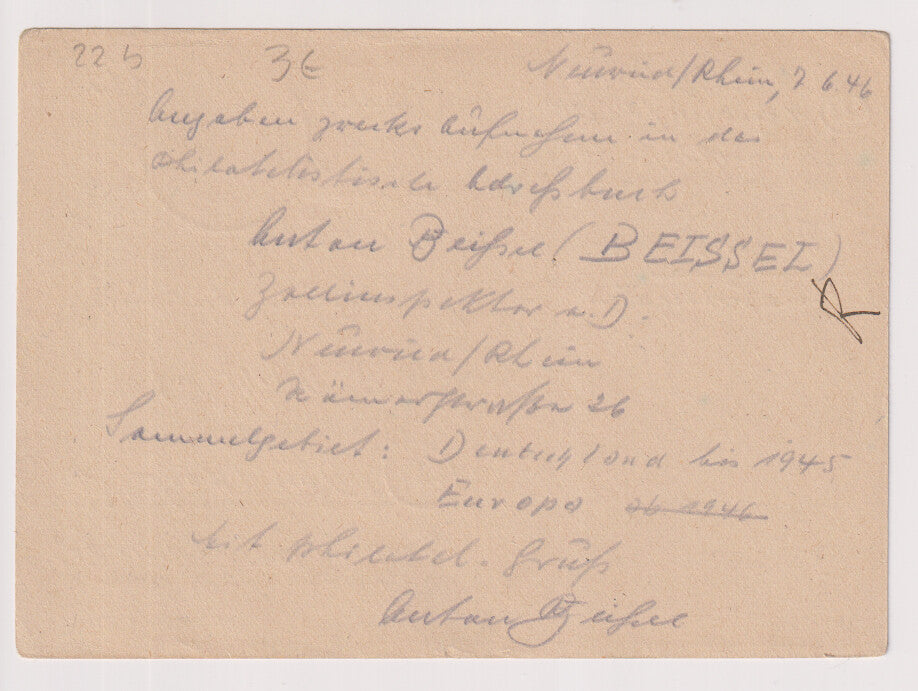 22 b 3€ Neuwied/Rhein, 7 6 46
Angaben zwecks Aufnahme in das
philatelistische Adreßbuch
Anton Beissel (BEISSEL)
Zollinspektor a. D.
Neuwied/Rhein
Römerstraße 26
Sammelgebiet: Deutschland bis 1945
Europa ab 1946
Mit philatel. Gruß
Anton Beissel